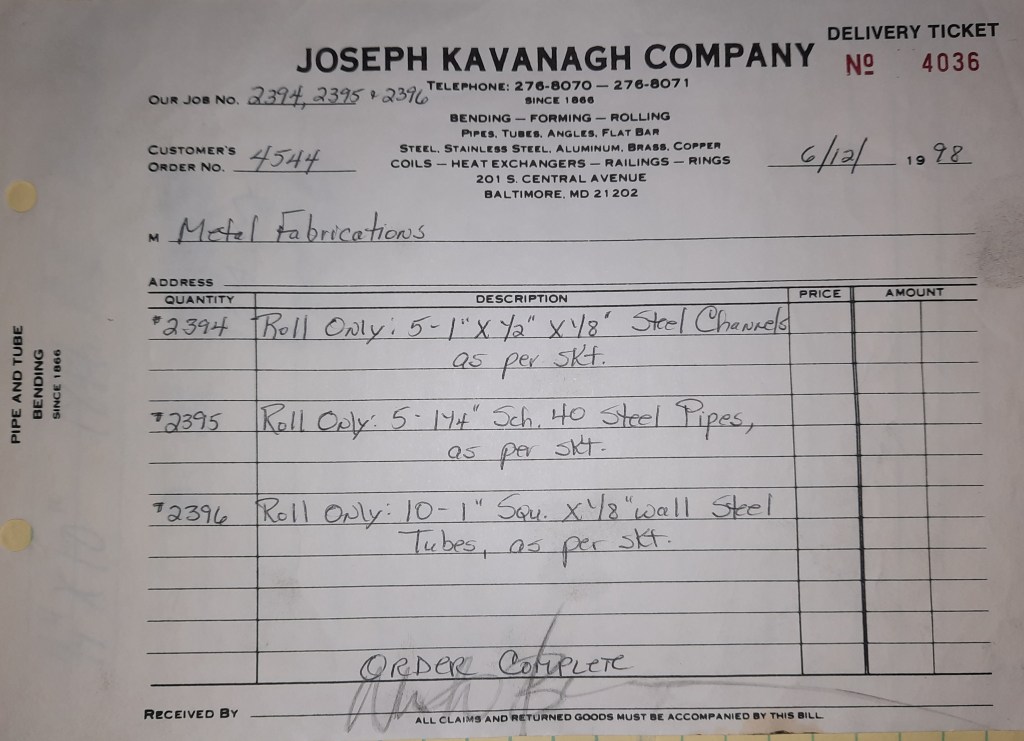 DELIVERY TICKET
JOSEPH KAVANAGH COMPANY
Nº 4036
OUR JOB NO. 2394, 2395 & 2396
TELEPHONE: 276-8070 — 276-8071
SINCE 1866
BENDING — FORMING — ROLLING
PIPES, TUBES, ANGLES, FLAT BAR
CUSTOMER'S
ORDER NO. 4544
STEEL, STAINLESS STEEL, ALUMINUM, BRASS, COPPER
COILS — HEAT EXCHANGERS — RAILINGS — RINGS
6/12/ 1998
201 S. CENTRAL AVENUE
BALTIMORE, MD 21202
M Metal Fabrications
ADDRESS
QUANTITY DESCRIPTION PRICE AMOUNT
#2394 Roll Only: 5-1" X 1/2" X 1/8" Steel Channels
as per skt.
#2395 Roll Only: 5-1 1/4" Sch. 40 Steel Pipes,
as per skt.
#2396 Roll Only: 10-1" Squ. X 1/8" wall Steel
Tubes, as per skt.
ORDER COMPLETE
RECEIVED BY
ALL CLAIMS AND RETURNED GOODS MUST BE ACCOMPANIED BY THIS BILL
PIPE AND TUBE
BENDING
SINCE 1866